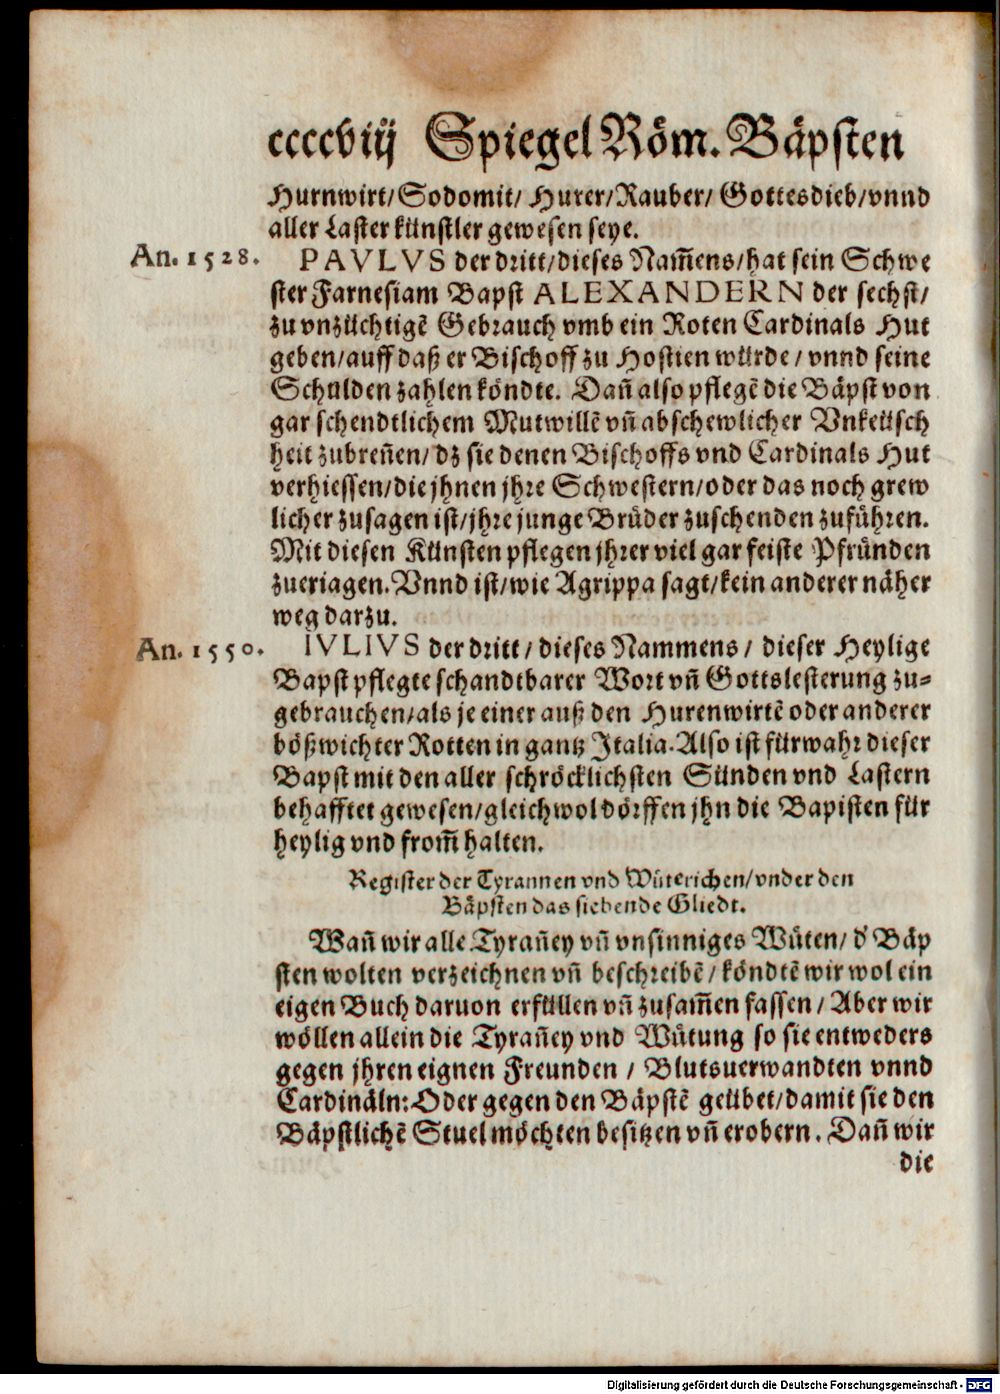 ccccviij Spiegel Röm. Bäpsten
Hurnwirt/Sodomit/ Hurer/Rauber/ Gottesdieb/vnnd
aller Laster künstler gewesen seye.
An. 1528. PAVLVS der dritt/dieses Nam̃ens/hat sein Schwe
ster Farnesiam Bapst ALEXANDERN der sechst/
zu vnzüchtigẽ Gebrauch vmb ein Roten Cardinals Hut
geben/auff daß er Bischoff zu Hostien würde/ vnnd seine
Schulden zahlen köndte. Dañ also pflegẽ die Bäpst von
gar schendtlichem Mutwillẽ vñ abschewlicher Vnkeüsch
heit zubreñen/ dz sie denen Bischoffs vnd Cardinals Hut
verhiessen/die jhnen jhre Schwestern/oder das noch grew
licher zusagen ist/jhre junge Brüder zuschenden zuführen.
Mit diesen Künsten pflegen jhrer viel gar feiste Pfründen
zueriagen. Vnnd ist/wie Agrippa sagt/kein anderer näher
weg darzu.
An. 1550. IVLIVS der dritt/ dieses Nammens/ dieser Heylige
Bapst pflegte schandtbarer Wort vñ Gottslesterung zu-
gebrauchen/als je einer auß den Hurenwirtẽ oder anderer
bößwichter Rotten in gantz Italia. Also ist fürwahr dieser
Bapst mit den aller schröcklichsten Sünden vnd Lastern
behafftet gewesen/gleichwol dörffen jhn die Bapisten für
heylig vnd from̃ halten.
Register der Tyrannen vnd Wüterichen/vnder den
Bäpsten das siebende Gliedt.
Wañ wir alle Tyrañey vñ vnsinniges Wüten/ d' Bäp
sten wolten verzeichnen vñ beschreibẽ/ köndtẽ wir wol ein
eigen Buch daruon erfüllen vñ zusam̃en fassen/ Aber wir
wöllen allein die Tyrañey vnd Wütung so sie entweders
gegen jhren eignen Freunden / Blutsuerwandten vnnd
Cardinäln: Oder gegen den Bäpstẽ geübet/damit sie den
Bäpstlichẽ Stuel möchten besitzen vñ erobern. Dañ wir
die
Digitalisierung gefördert durch die Deutsche Forschungsgemeinschaft - DFG